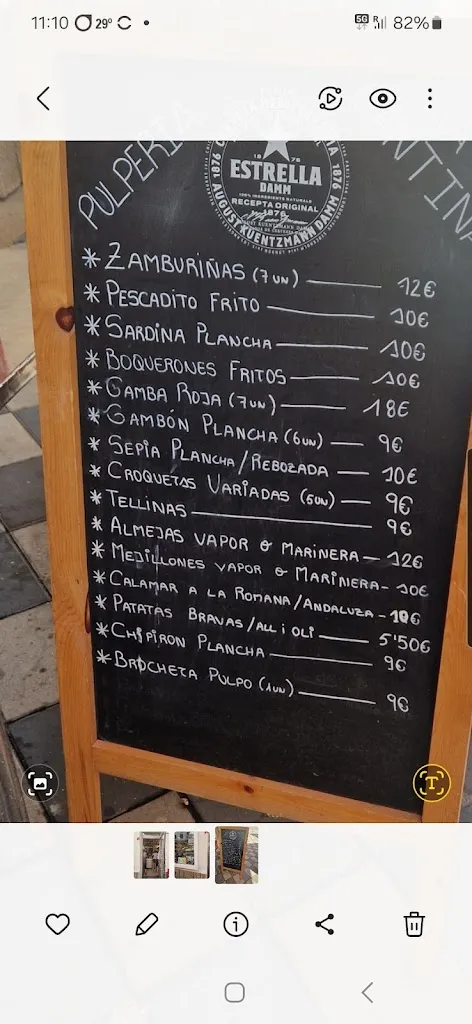 11:10 29° 5G R 82%
PULPERIA
1876
ESTRELLA
DAMM
100% INGREDIENTES NATURALES
RECEPTA ORIGINAL
1876
AUGUST KUENTZMANN DAMM
1876 1876
* ZAMBURIÑAS (7 UN) 12€
* PESCADITO FRITO 10€
* SARDINA PLANCHA 10€
* BOQUERONES FRITOS 10€
* GAMBA ROJA (7UN) 18€
* GAMBÓN PLANCHA (6UN) 9€
* SEPIA PLANCHA/REBOZADA 10€
* CROQUETAS VARIADAS (5UN) 9€
* TELLINAS 9€
* ALMEJAS VAPOR O MARINERA 12€
* MEJILLONES VAPOR O MARINERA 10€
* CALAMAR A LA ROMANA/ANDALUZA 10€
* PATATAS BRAVAS/ALL i OLI 5'50€
* CHIPIRON PLANCHA 9€
* BROCHETA PULPO (1UN) 9€
T